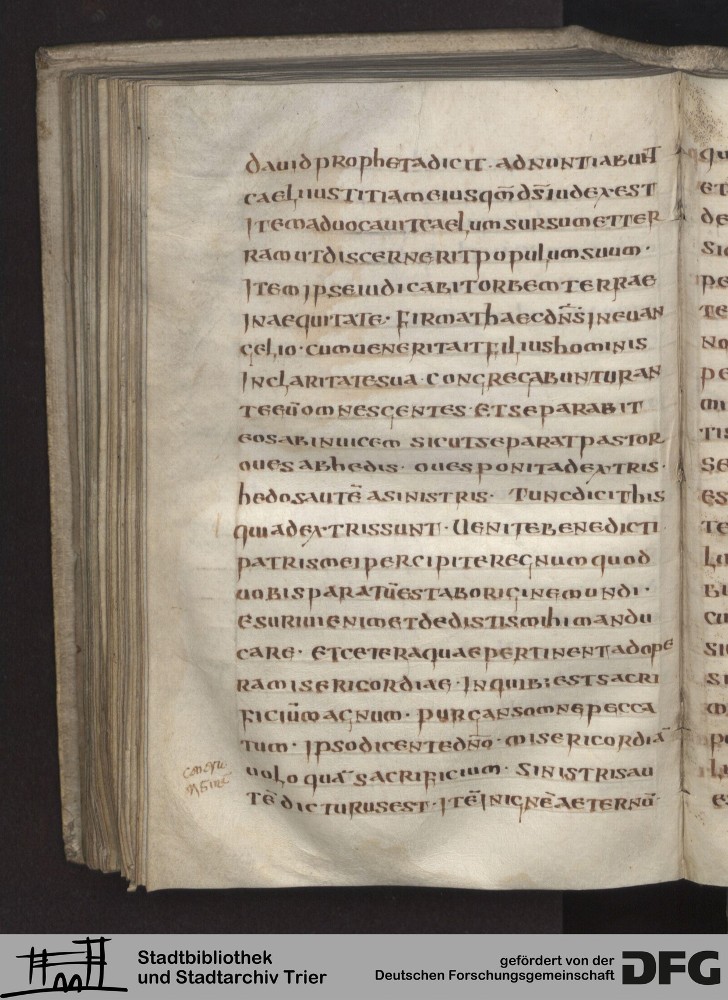 dauidprophetadicit · adnuntiabunt
caeliiustitiameiusqm̄ds̄iudexest
Itemaduocauitcaelumsursumetter
ramutdisceneritpopulumsuum ·
Itemipseiudicabitorbemterrae
Inaequitate · firmathaecdn̄sIneuan
gelio · cumueneritaitfiliushominis
Inclaritatesua · congregabuntur an
teeūomnesgentes · etseparabit
eosabinuicem sicutseparatpastor
ouesabhedis · ouesponitadextris ·
hedosautē asinistris · Tuncdicithis
quiadextrissunt · Uenitebenedicti
patrismeipercipiteregnumquod
uobisparatūestaboriginemundi ·
esuriuienimetdedistismihimandu
care · etceteraquaepertinentadope
ramisericordiae · Inquib;estsacri
ficiūmagnum · purgansomnepecca
tum · Ipsodicentedn̄o · misericordiā
uolo quā sacrificium · Sinistrisau
tē dicturusest · Itē Inignē aeternō ·
Stadtbibliothek
und Stadtarchiv Trier
gefördert von der
Deutschen Forschungsgemeinschaft
DFG